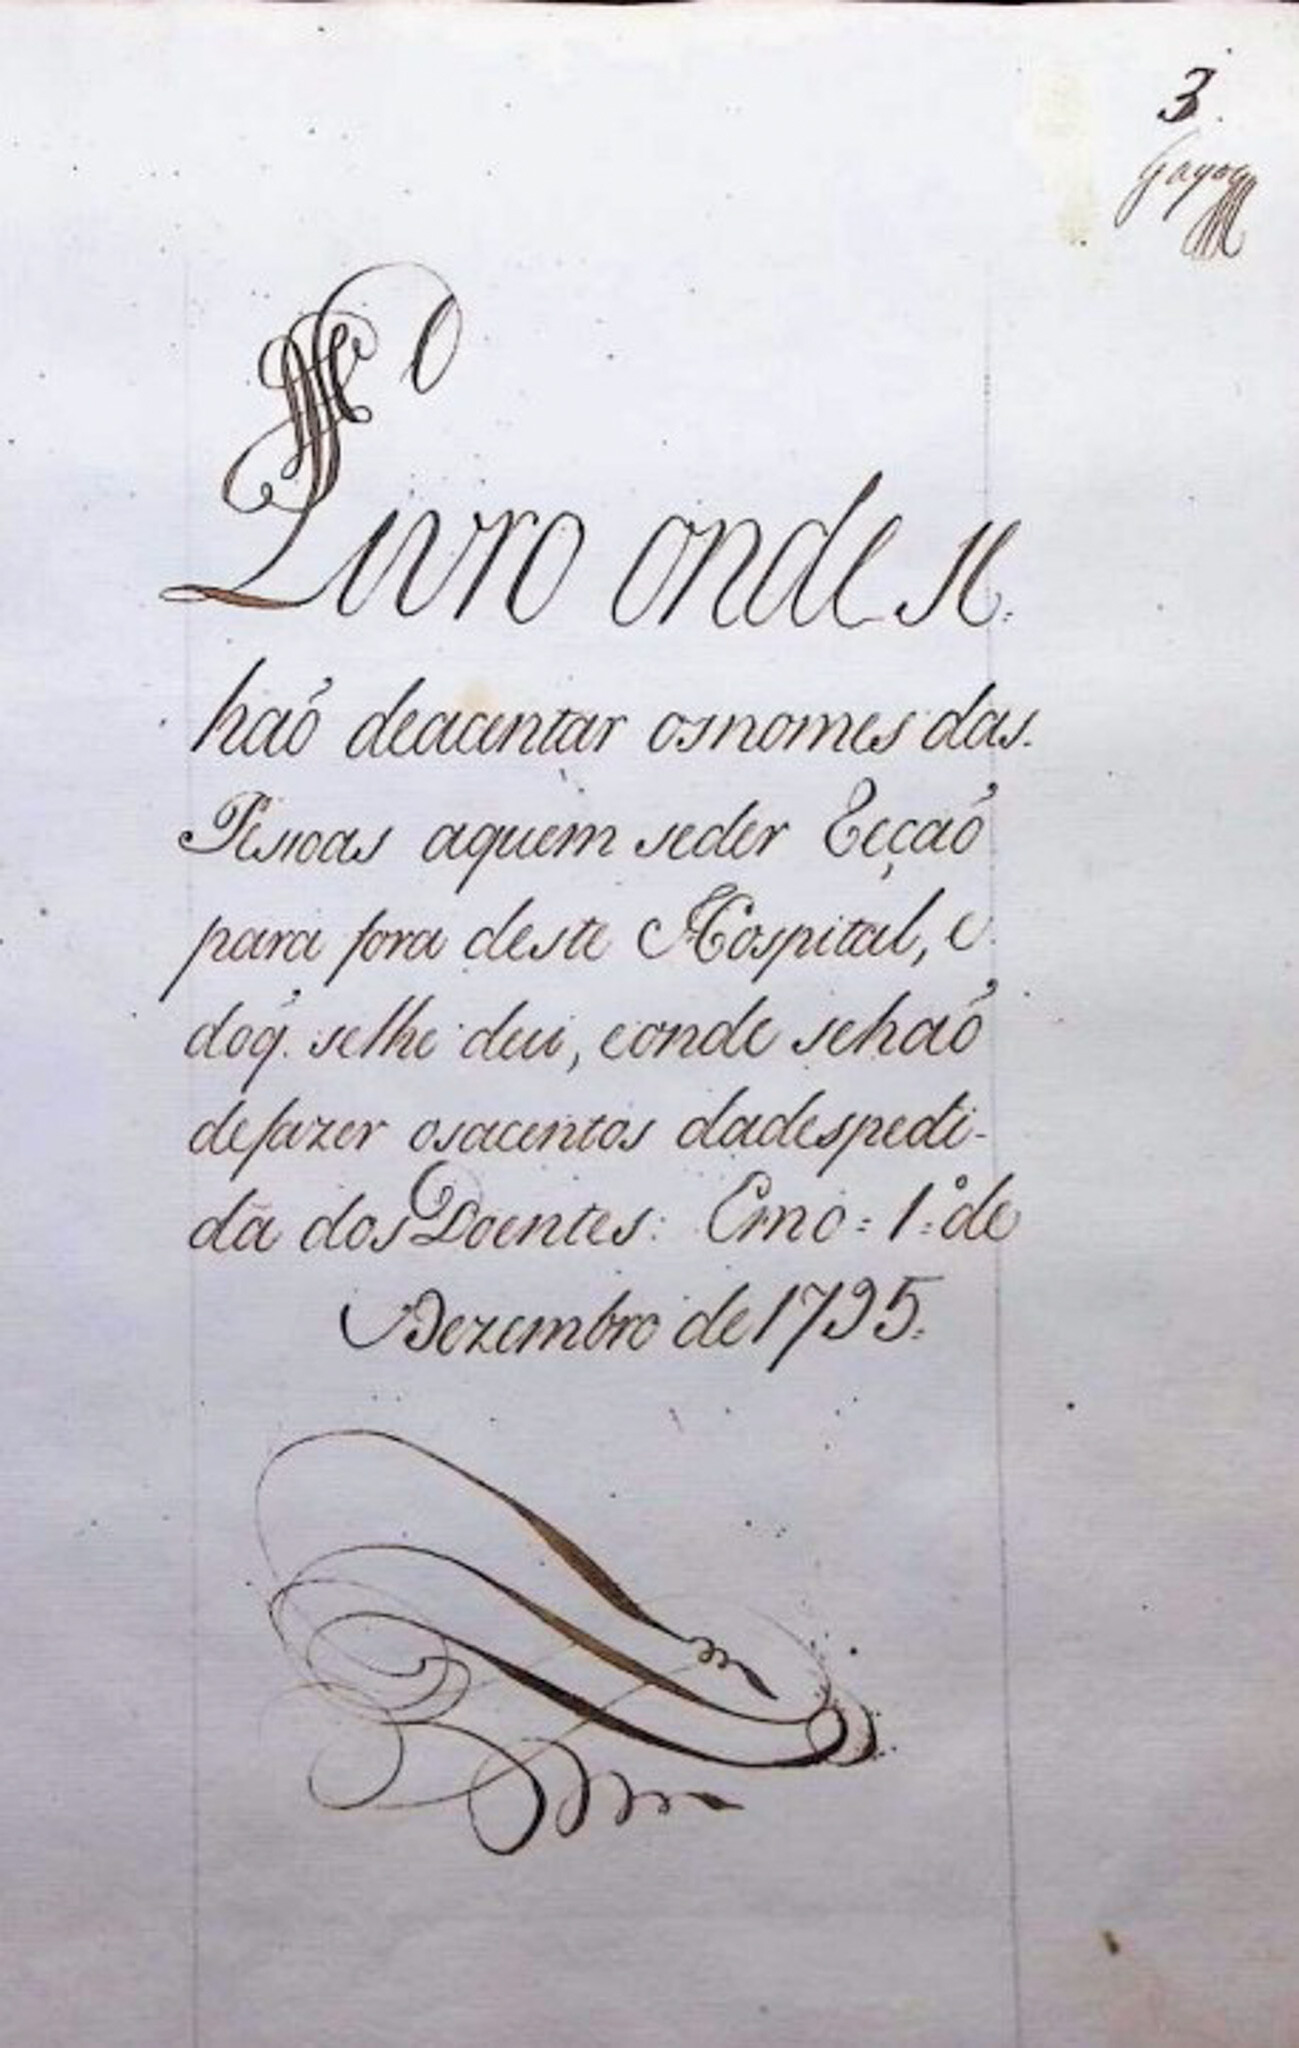 3.
Gayoso
N O
Livro onde se
haó deacentar osnomes das.
Pessoas aquem seder Recçaó
para fora deste Hospital, e
doq̃. selhe deu, eonde sehaó
defazer osacentos dadespedi-
da dos Doentes: Em o = 1.º de
Dezembro de 1795.